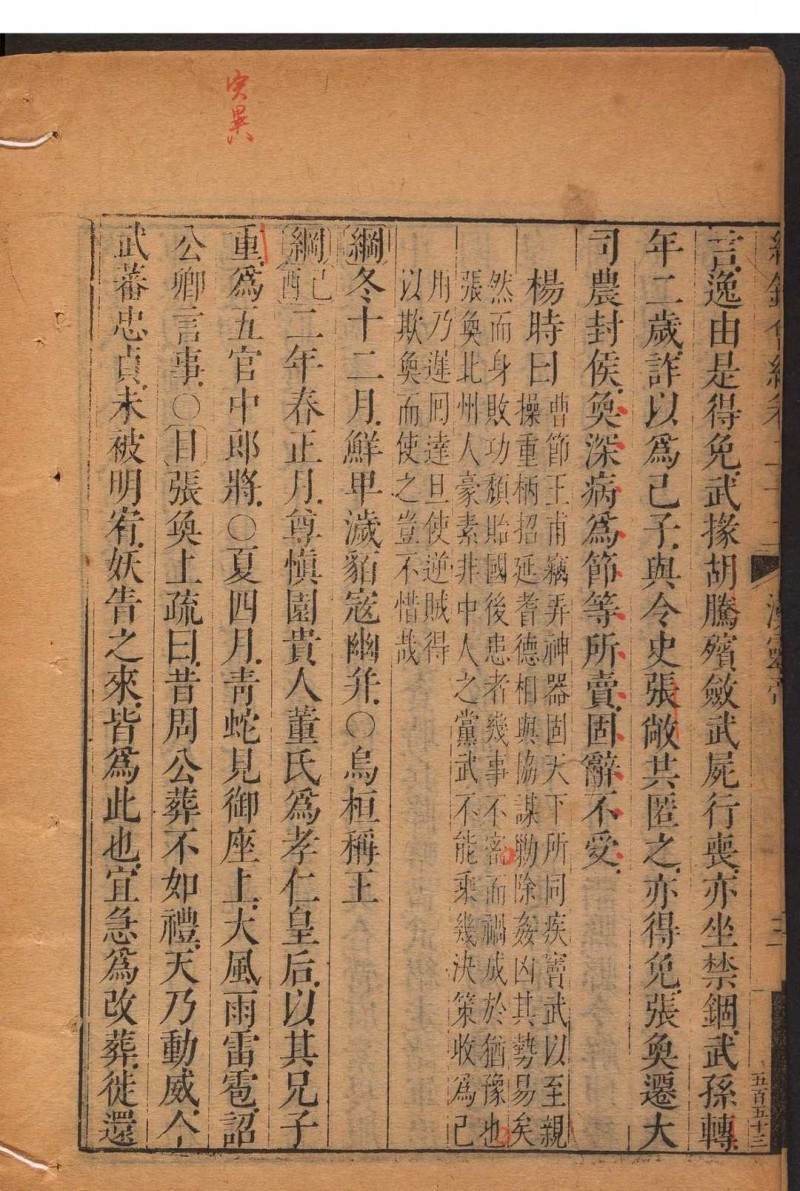 五百五十三
言逸由是得免武掾胡騰殯斂武屍行喪亦坐禁錮武孫轉
年二歲詐以爲己子與令史張敞共匿之亦得免張奐遷大
司農封侯奐深病爲節等所賣固辭不受
楊時曰曹節王甫竊弄神器固天下所同疾竇武以至親
操重柄招延耆德相與協謀勦除姦凶其勢易矣
然而身敗功頹貽國後患者幾事不密而禍成於猶豫也
張奐北州人豪素非中人之黨武不能乘幾決策收爲己
用乃遲回達旦使逆賊得
以欺奐而使之豈不惜哉
綱冬十二月鮮卑濊貊寇幽并〇烏桓稱王
綱己酉二年春正月尊慎園貴人董氏爲孝仁皇后以其兄子
重爲五官中郎將〇夏四月青蛇見御座上大風雨雷雹詔
公卿言事〇目張奐上疏曰昔周公葬不如禮天乃動威今
武蕃忠貞未被明宥妖眚之來皆爲此也宜急爲改葬徙還